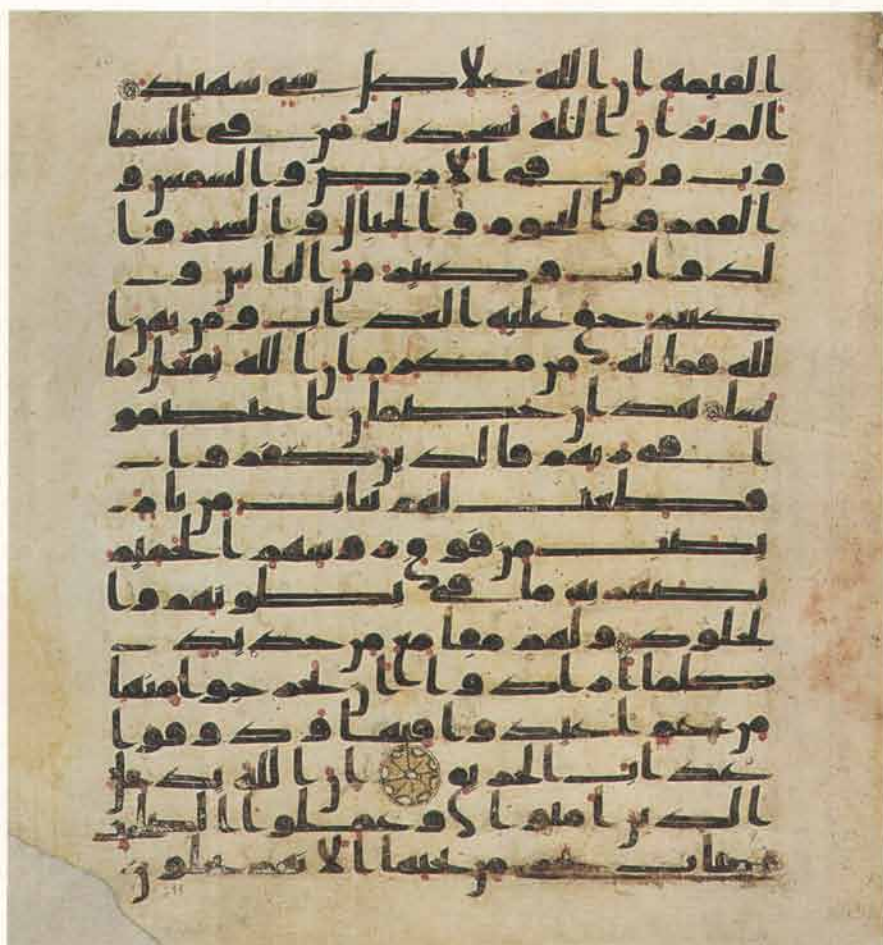 القيمه ان الله على كل شى شهيد
الم تر ان الله يسجد له من فى السما
وت ومن فى الارض والشمس و
القمر والنجوم والجبال والشجر وا
لدواب وكثير من الناس و
كثير حق عليه العذاب ومن يهن ا
لله فما له من مكرم ان الله يفعل ما
يشا هذان خصمان اختصمو
ا فى ربهم فالذين كفروا
قطعت لهم ثياب من نار
يصب من فوق روسهم الحميم
يصهر به ما فى بطونهم وا
لجلود ولهم مقامع من حديد
كلما ارادوا ان يخرجوا منها
من غم اعيدوا فيها وذوقوا
عذاب الحريق ان الله يدخل
الذين امنوا وعملوا الصلحت
جنات تجرى من تحتها الانهر يحلون